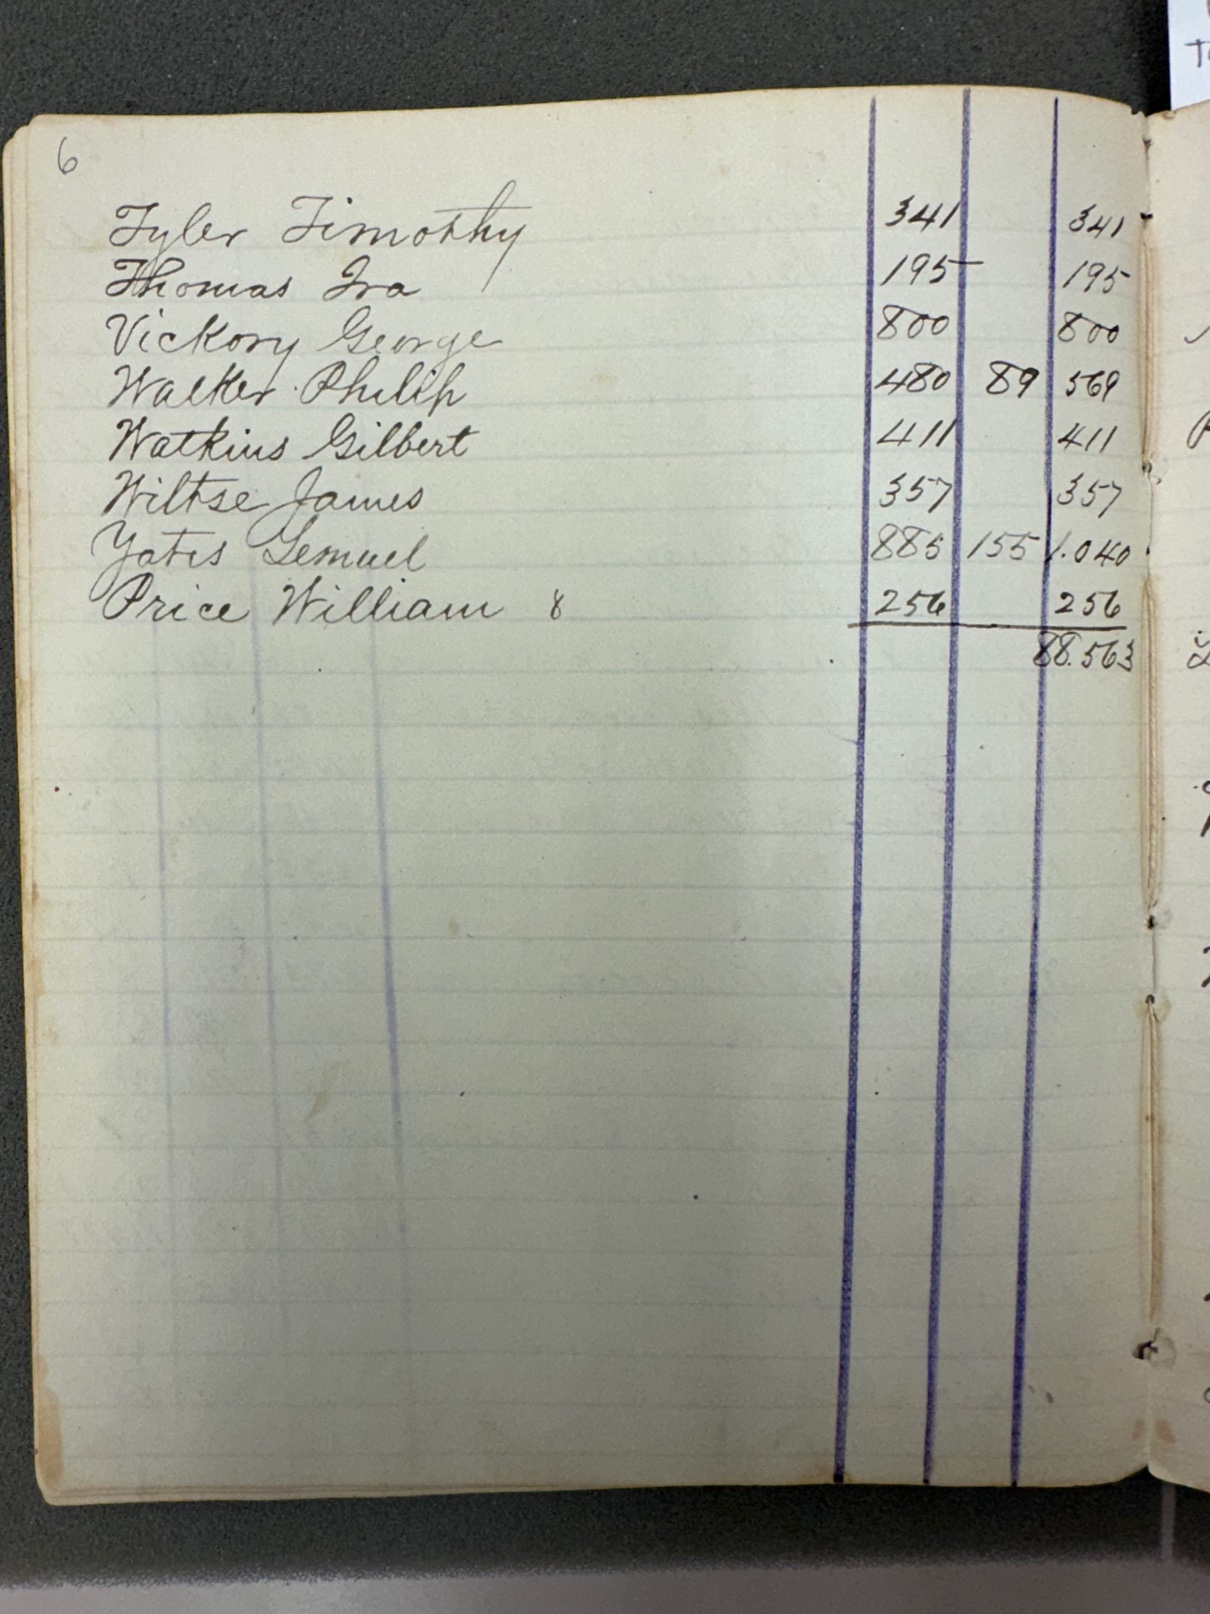 6
Tyler Timothy 341 341
Thomas Ira 195 195
Vickory George 800 800
Walker Philip 480 89 569
Watkins Gilbert 411 411
Wiltse James 357 357
Yates Lemuel 885 155 1.040
Price William 8 256 256
88.563